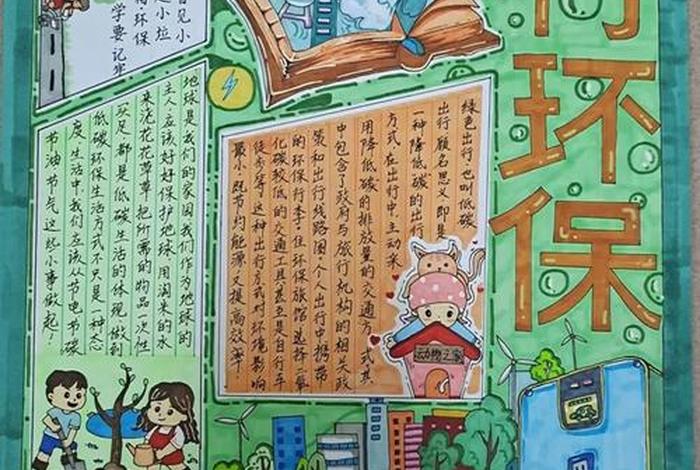 环保
见小
小垃
环保
学要记牢
绿色出行,也叫低碳
出行顾名思义即是
一种降低碳的出行
方式.在出行中,主动采
用降低碳的排放量的交通方式其
中包含了政府与旅行机构的相关政
策和出行线路图个人出行中携带
的环保行李.住环保旅馆.选择二氧
化碳较低的交通工具甚至是自行车
徒步等,这种出行方式对环境影响
最小.既节约能源又提高效率.
动物之家
地球是我们的家园我们作为地球的
主人应该好好保护地球.用淘来的水
来浇花花草草.把所需的物品一次性
买足.都是低碳生活的体现.做到
低碳环保生活方式不只是一种态
度.生活中,我们应该从节电节碳
节油节气这些小事做起!